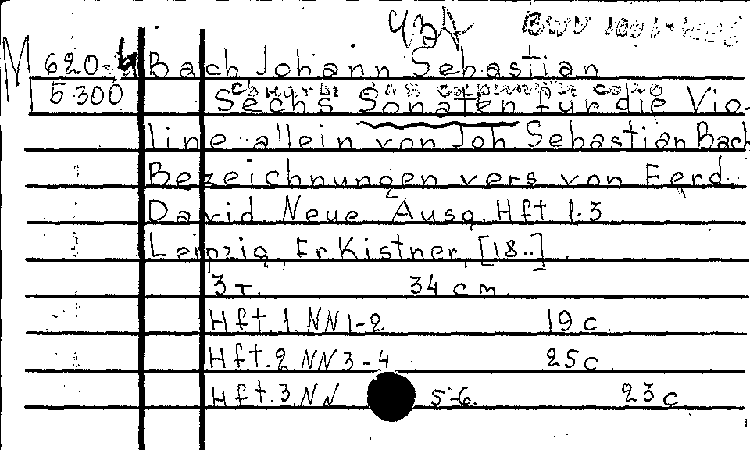 42A BWV 1001-1006
M 620-4 Bach Johann Sebastian
5300 Sechs Sonaten für die Vio-
line allein von Joh Sebastian Bach
Bezeichnungen vers von Ferd.
David. Neue Ausg. Hft 1-3
Leipzig, Fr Kistner, [18..].
3 т. 34 cm.
Hft. 1. NN 1-2 19 c.
Hft. 2 NN 3-4 25 c.
Hft. 3. NN 5-6. 23 c.